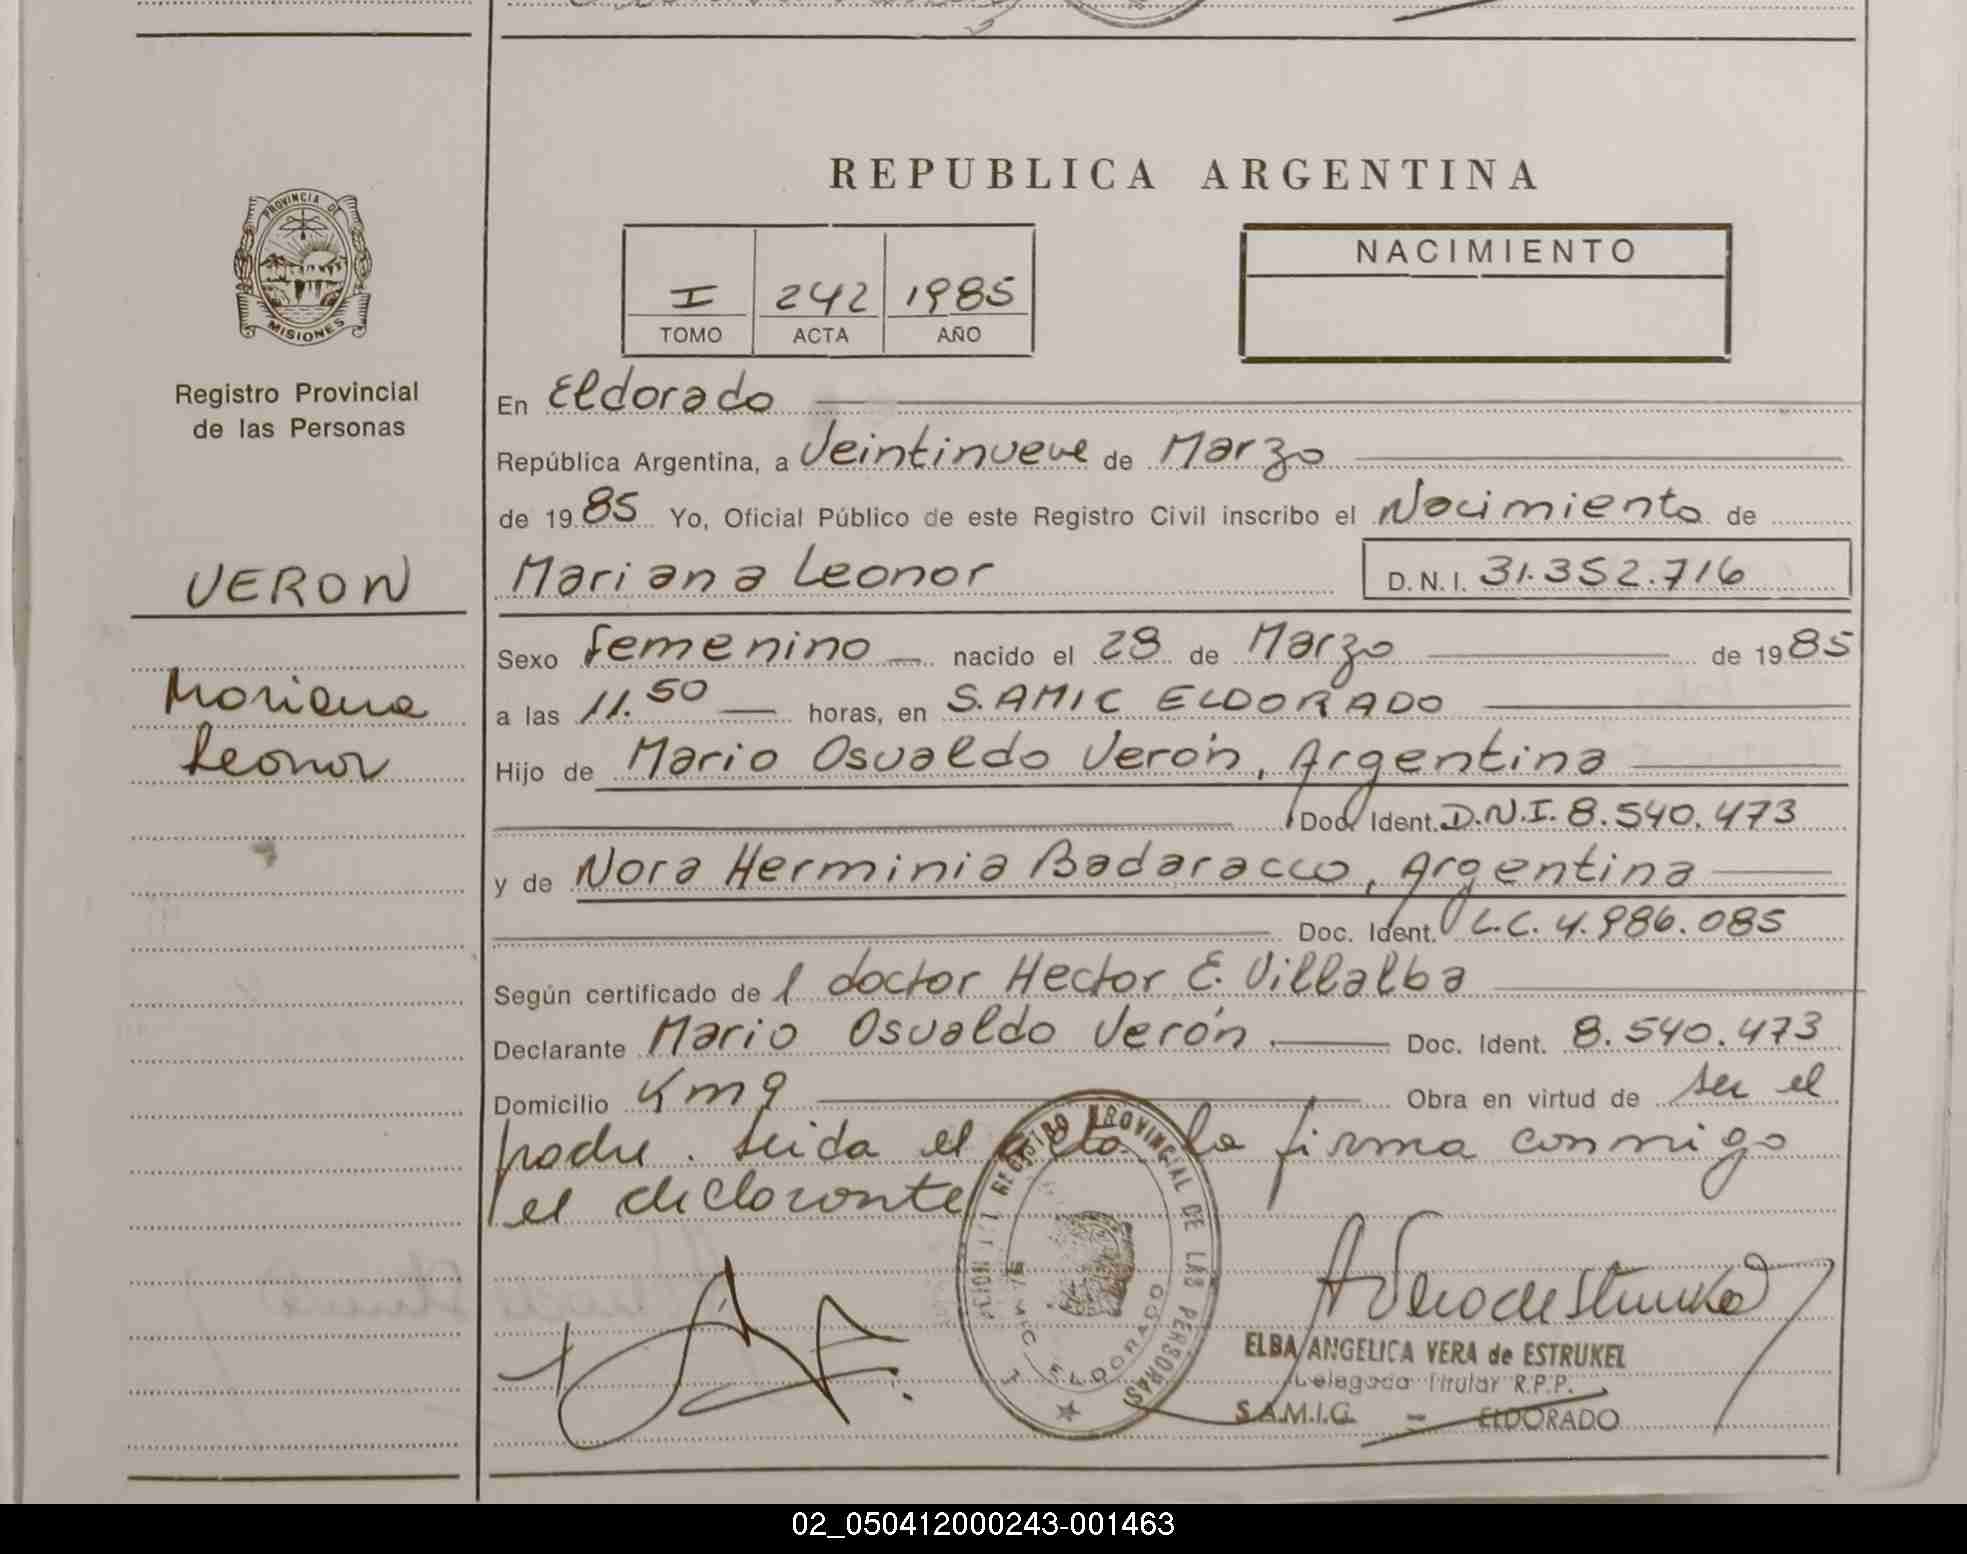 REPUBLICA ARGENTINA
PROVINCIA DE
MISIONES
Registro Provincial
de las Personas
VERON
Mariana
Leonor
I 242 1985
TOMO ACTA AÑO
NACIMIENTO
En Eldorado
República Argentina, a Veintinueve de Marzo
de 1985 Yo, Oficial Público de este Registro Civil inscribo el Nacimiento de
Mariana Leonor D.N.I. 31.352.716
Sexo femenino nacido el 28 de Marzo de 1985
a las 11.50 horas, en S.AMIC ELDORADO
Hijo de Mario Osvaldo Verón, Argentina
Doc. Ident. D.N.I. 8.540.473
y de Nora Herminia Badaracco, Argentina
Doc. Ident. L.C. 4.986.085
Según certificado del doctor Hector E. Villalba
Declarante Mario Osvaldo Verón. Doc. Ident. 8.540.473
Domicilio Km 9 Obra en virtud de ser el
padre. Leida el acta la firma conmigo
el declarante
REGISTRO PROVINCIAL DE LAS PERSONAS
ELDORADO
ELBA ANGELICA VERA de ESTRUKEL
Delegada Titular R.P.P.
S.A.M.I.C. - ELDORADO
02_050412000243-001463